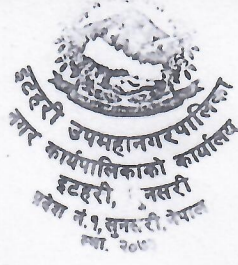 इटहरी उपमहानगरपालिका
नगर कार्यपालिकाको कार्यालय
इटहरी, सुनसरी
प्रदेश नं. १, सुनसरी, नेपाल
स्था.